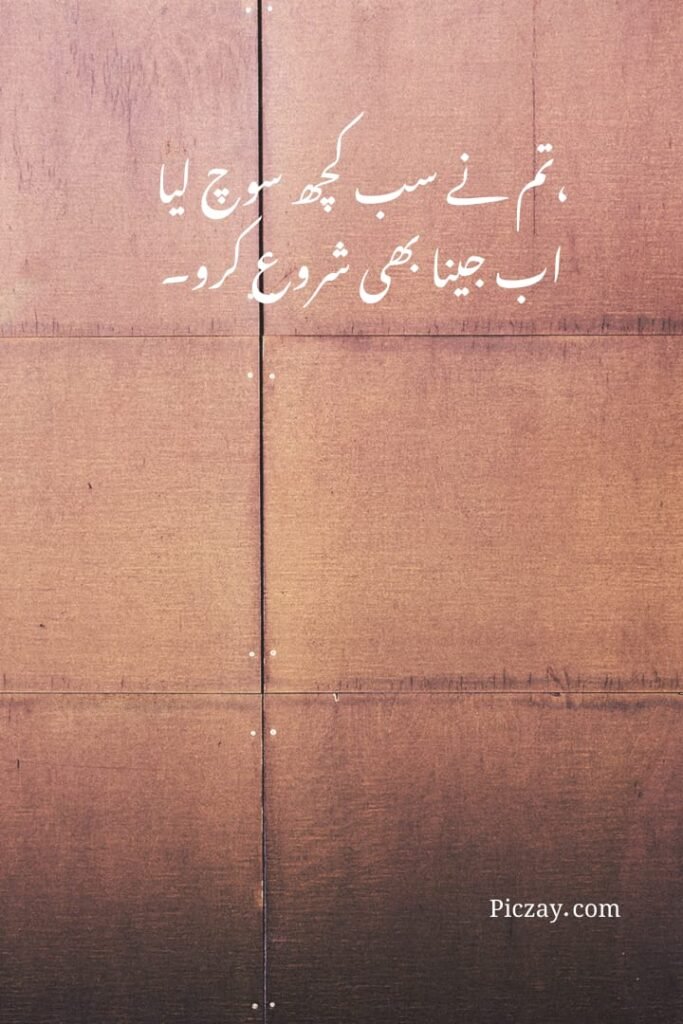 ،تم نے سب کچھ سوچ لیا
اب جینا بھی شروع کرو۔
Piczay.com